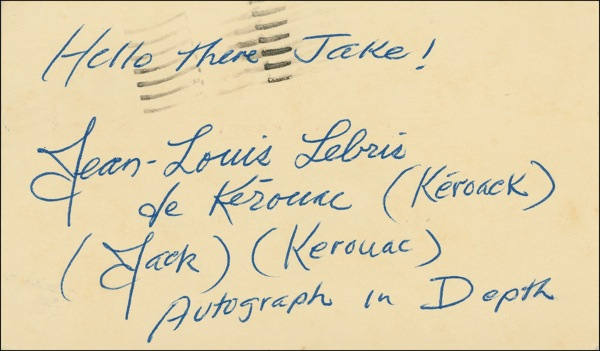 Hello there Jake!
Jean-Louis Lebris
de Kérouac (Kéroack)
(Jack) (Kerouac)
Autograph in Depth